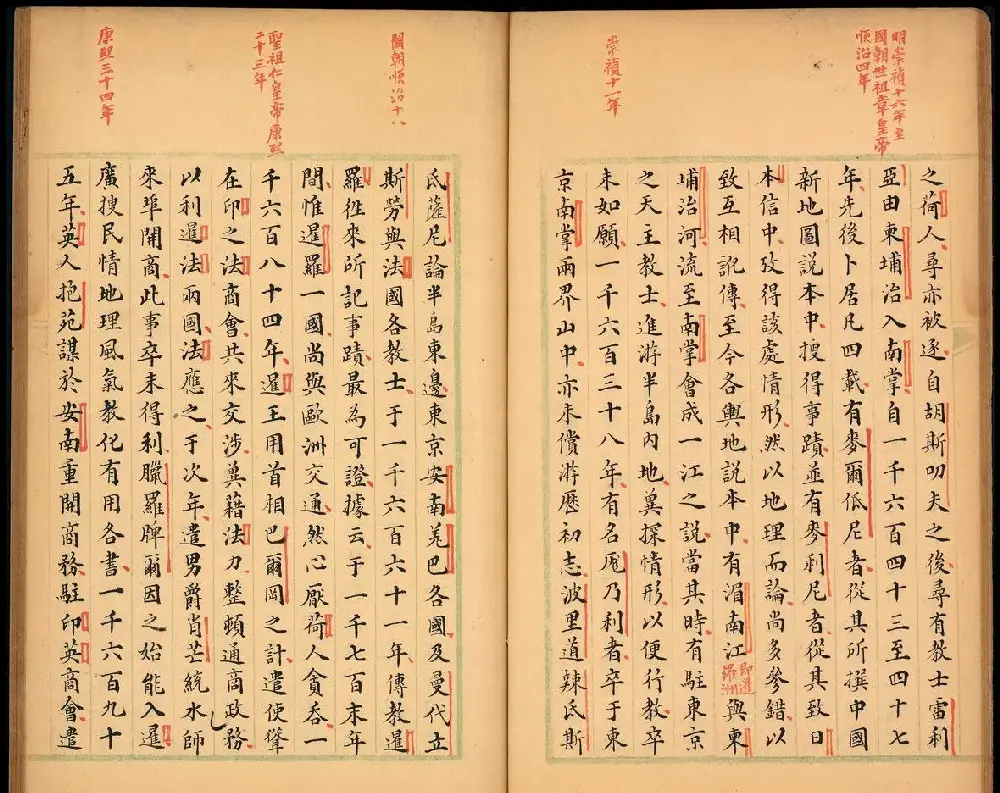 明崇禎十六年至
國朝世祖章皇帝
順治四年
之荷人尋亦被逐自胡斯叨夫之後尋有教士雷利
亞由東埔治入南掌自一千六百四十三至四十七
年先後卜居凡四載有麥爾低尼者從其所撰中國
新地圖說本中搜得事蹟並有麥利尼者從其致日
本信中攷得該處情形然以地理而論尚多參錯以
致互相訛傳至今各輿地說本中有湄南江即暹羅洲與東
埔治河流至南掌會成一江之說當其時有駐東京
之天主教士進游半島內地冀探情形以便行教卒
崇禎十一年
未如願一千六百三十八年有名厖乃利者卒于東
京南掌兩界山中亦未償游歷初志波里道辣氏斯
氏薩尼論半島東邊東京安南羌巴各國及曼代立
國朝順治十八
斯勞與法國各教士于一千六百六十一年傳教暹
羅往來所記事蹟最為可證據云于一千七百末年
間惟暹羅一國尚與歐洲交通然心厭荷人貪吞一
聖祖仁皇帝康熙
二十三年
千六百八十四年暹王用首相巴爾岡之計遣使聳
在印之法商會共來交涉冀藉法力整頓通商政務
以利暹法兩國法應之于次年遣男爵肖芒統水師
來埠開商此事卒未得利臘羅脾爾因之始能入暹
廣搜民情地理風氣教化有用各書一千六百九十
康熙三十四年
五年英人抱苑謀於安南重開商務駐印英商會遣